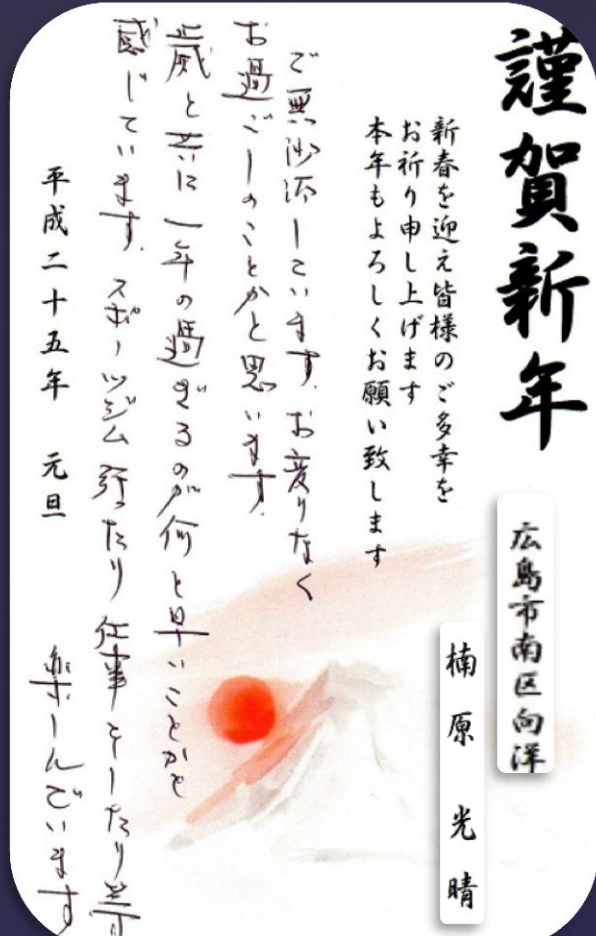 謹賀新年
新春を迎え皆様のご多幸を
お祈り申し上げます
本年もよろしくお願い致します
ご無沙汰しています。お変りなく
お過ごしのことかと思います。
歳と共に一年の過ぎるのが何と早いことかと
感じています。スポーツジム行ったり仕事をしたり等
楽しんでいます
平成二十五年 元旦
広島市南区向洋
楠原 光晴